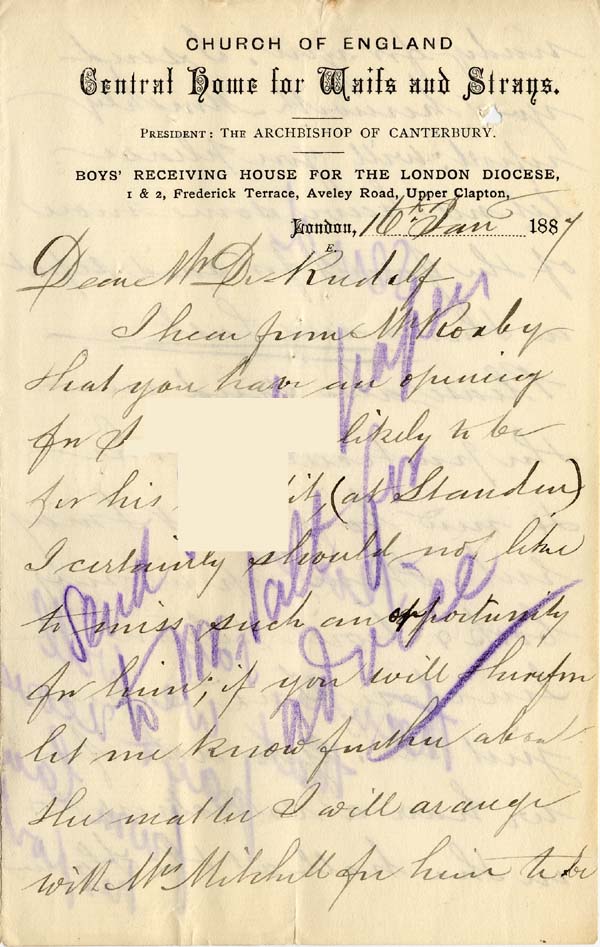 CHURCH OF ENGLAND
Central Home for Waifs and Strays.
PRESIDENT: THE ARCHBISHOP OF CANTERBURY.
BOYS' RECEIVING HOUSE FOR THE LONDON DIOCESE,
1 & 2, Frederick Terrace, Aveley Road, Upper Clapton,
London, 16th Jan 1887
E.
Dear Mr De Rudolf
I hear from Mr Roxby
that you have an opening
for I likely to be
for his it, (at Standen)
I certainly should not like
to miss such an opportunity
for him; if you will therefore
let me know further about
the matter I will arange
with Mrs Mitchell for him to be
Send papers
to Mr for
advise